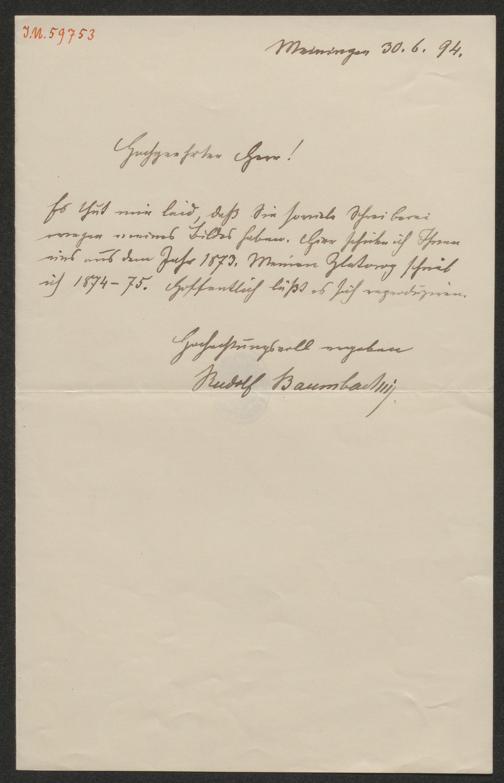 J.N. 59753
Meiningen 30. 6. 94.
Hochgeehrter Herr!
Es thut mir leid, daß Sie soviele Schreiberei
wegen meines Bildes haben. Hier schicke ich Ihnen
eins aus dem Jahr 1873. Meinen Zlatorog schrieb
ich 1874-75. Hoffentlich läßt es sich reproduziren.
Hochachtungsvoll ergeben
Rudolf Baumbach